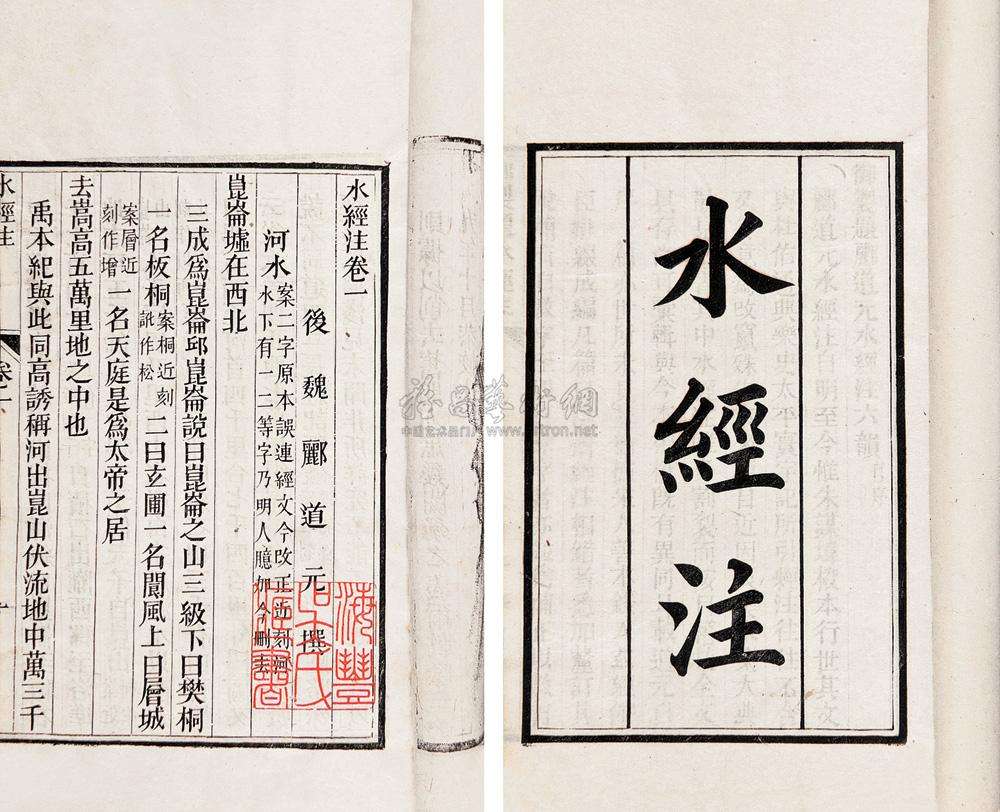 水經注
水經注卷一
後魏酈道元撰
河水案二字原本誤連經文今改正近刻
水下有一二等字乃明人臆加今刪去
崑崙墟在西北
三成爲崑崙邱崑崙說曰崑崙之山三級下曰樊桐
一名板桐案桐近刻訛作松二曰玄圃一名閬風上曰層城
案層近刻作增一名天庭是爲太帝之居
去嵩高五萬里地之中也
禹本紀與此同高誘稱河出崑山伏流地中萬三千
水經注
卷一
海豐
吳氏
雅昌藝術網
www.artron.net